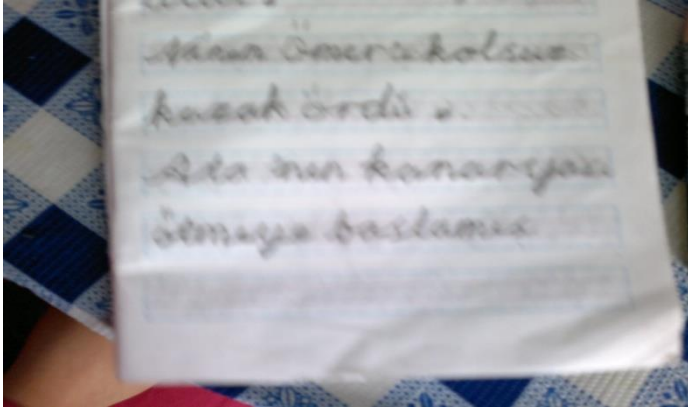 Ninem Ömere kolsuz
kazak ördü.
Ada'nın kanaryası
ötmeye başlamış